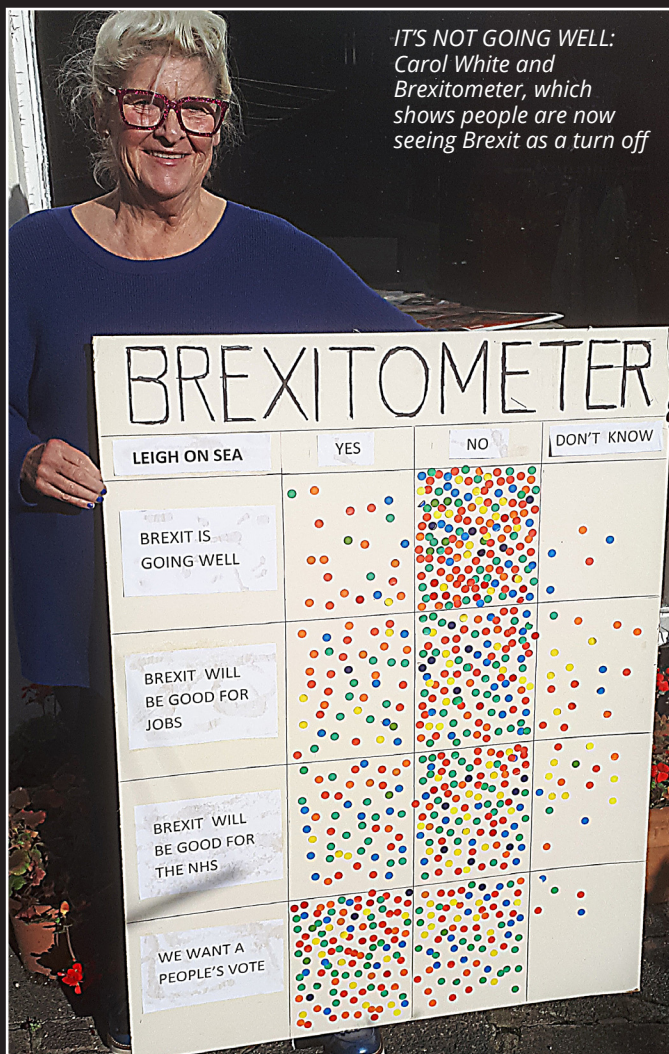 IT'S NOT GOING WELL:
Carol White and
Brexitometer, which
shows people are now
seeing Brexit as a turn off
BREXITOMETER
LEIGH ON SEA
YES
NO
DON'T KNOW
BREXIT IS
GOING WELL
BREXIT WILL
BE GOOD FOR
JOBS
BREXIT WILL
BE GOOD FOR
THE NHS
WE WANT A
PEOPLE'S VOTE